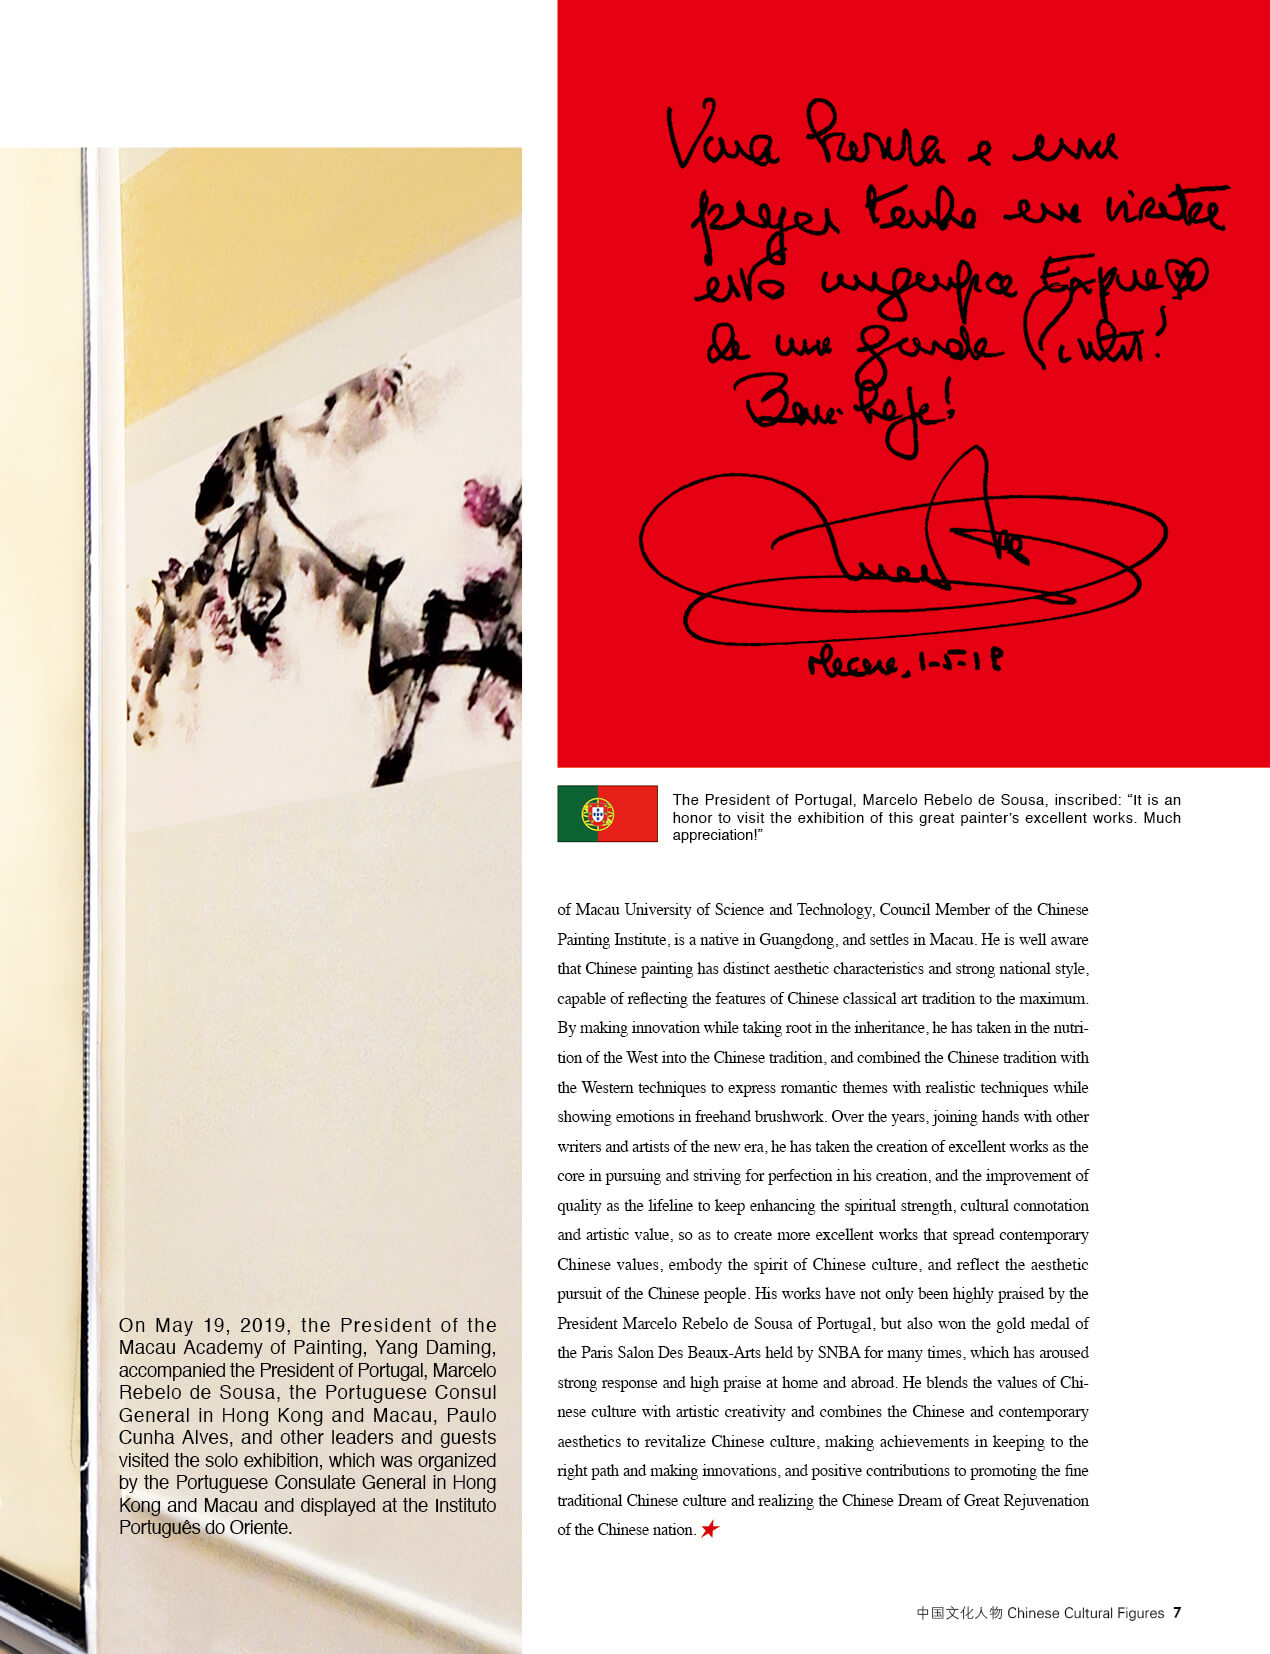 e
tenho em visitar
de uma grande
Macau, 1-5-19
The President of Portugal, Marcelo Rebelo de Sousa, inscribed: “It is an
honor to visit the exhibition of this great painter’s excellent works. Much
appreciation!”
On May 19, 2019, the President of the
Macau Academy of Painting, Yang Daming,
accompanied the President of Portugal, Marcelo
Rebelo de Sousa, the Portuguese Consul
General in Hong Kong and Macau, Paulo
Cunha Alves, and other leaders and guests
visited the solo exhibition, which was organized
by the Portuguese Consulate General in Hong
Kong and Macau and displayed at the Instituto
Português do Oriente.
of Macau University of Science and Technology, Council Member of the Chinese
Painting Institute, is a native in Guangdong, and settles in Macau. He is well aware
that Chinese painting has distinct aesthetic characteristics and strong national style,
capable of reflecting the features of Chinese classical art tradition to the maximum.
By making innovation while taking root in the inheritance, he has taken in the nutri-
tion of the West into the Chinese tradition, and combined the Chinese tradition with
the Western techniques to express romantic themes with realistic techniques while
showing emotions in freehand brushwork. Over the years, joining hands with other
writers and artists of the new era, he has taken the creation of excellent works as the
core in pursuing and striving for perfection in his creation, and the improvement of
quality as the lifeline to keep enhancing the spiritual strength, cultural connotation
and artistic value, so as to create more excellent works that spread contemporary
Chinese values, embody the spirit of Chinese culture, and reflect the aesthetic
pursuit of the Chinese people. His works have not only been highly praised by the
President Marcelo Rebelo de Sousa of Portugal, but also won the gold medal of
the Paris Salon Des Beaux-Arts held by SNBA for many times, which has aroused
strong response and high praise at home and abroad. He blends the values of Chi-
nese culture with artistic creativity and combines the Chinese and contemporary
aesthetics to revitalize Chinese culture, making achievements in keeping to the
right path and making innovations, and positive contributions to promoting the fine
traditional Chinese culture and realizing the Chinese Dream of Great Rejuvenation
of the Chinese nation.
中国文化人物 Chinese Cultural Figures 7